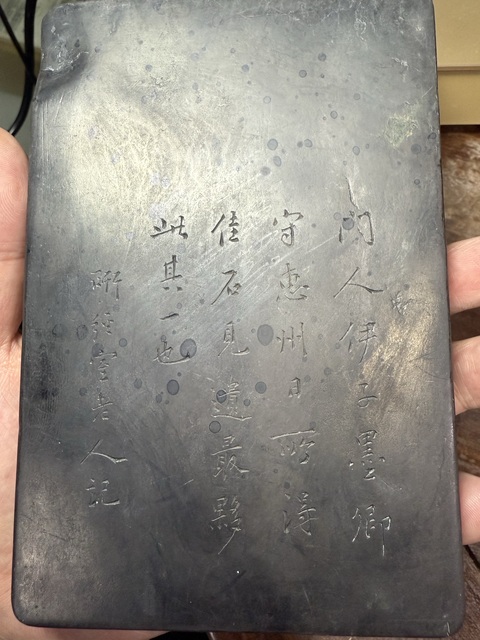 門人伊子墨卿
守惠州日所得
佳石見遺最夥
此其一也
研經室老人記